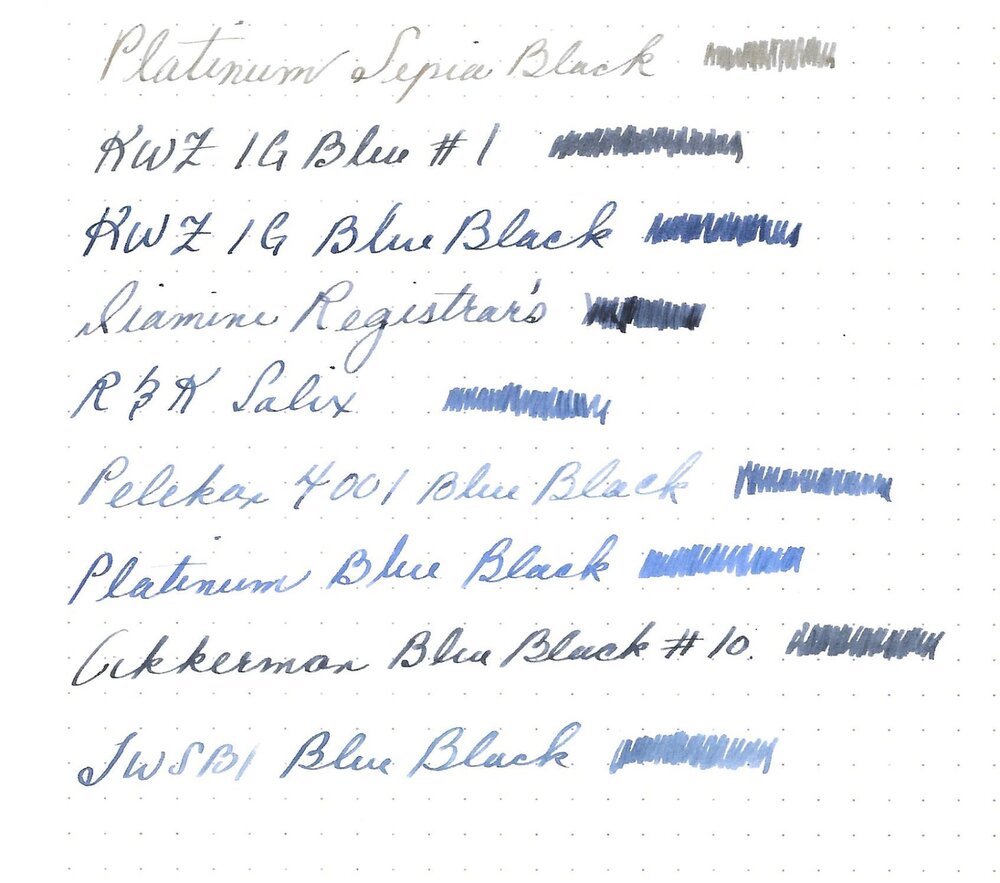 Platinum Sepia Black
KWZ IG Blue #1
KWZ IG Blue Black
Diamine Registrar's
R & K Salix
Pelikan 4001 Blue Black
Platinum Blue Black
Akkerman Blue Black #10
TWSBI Blue Black